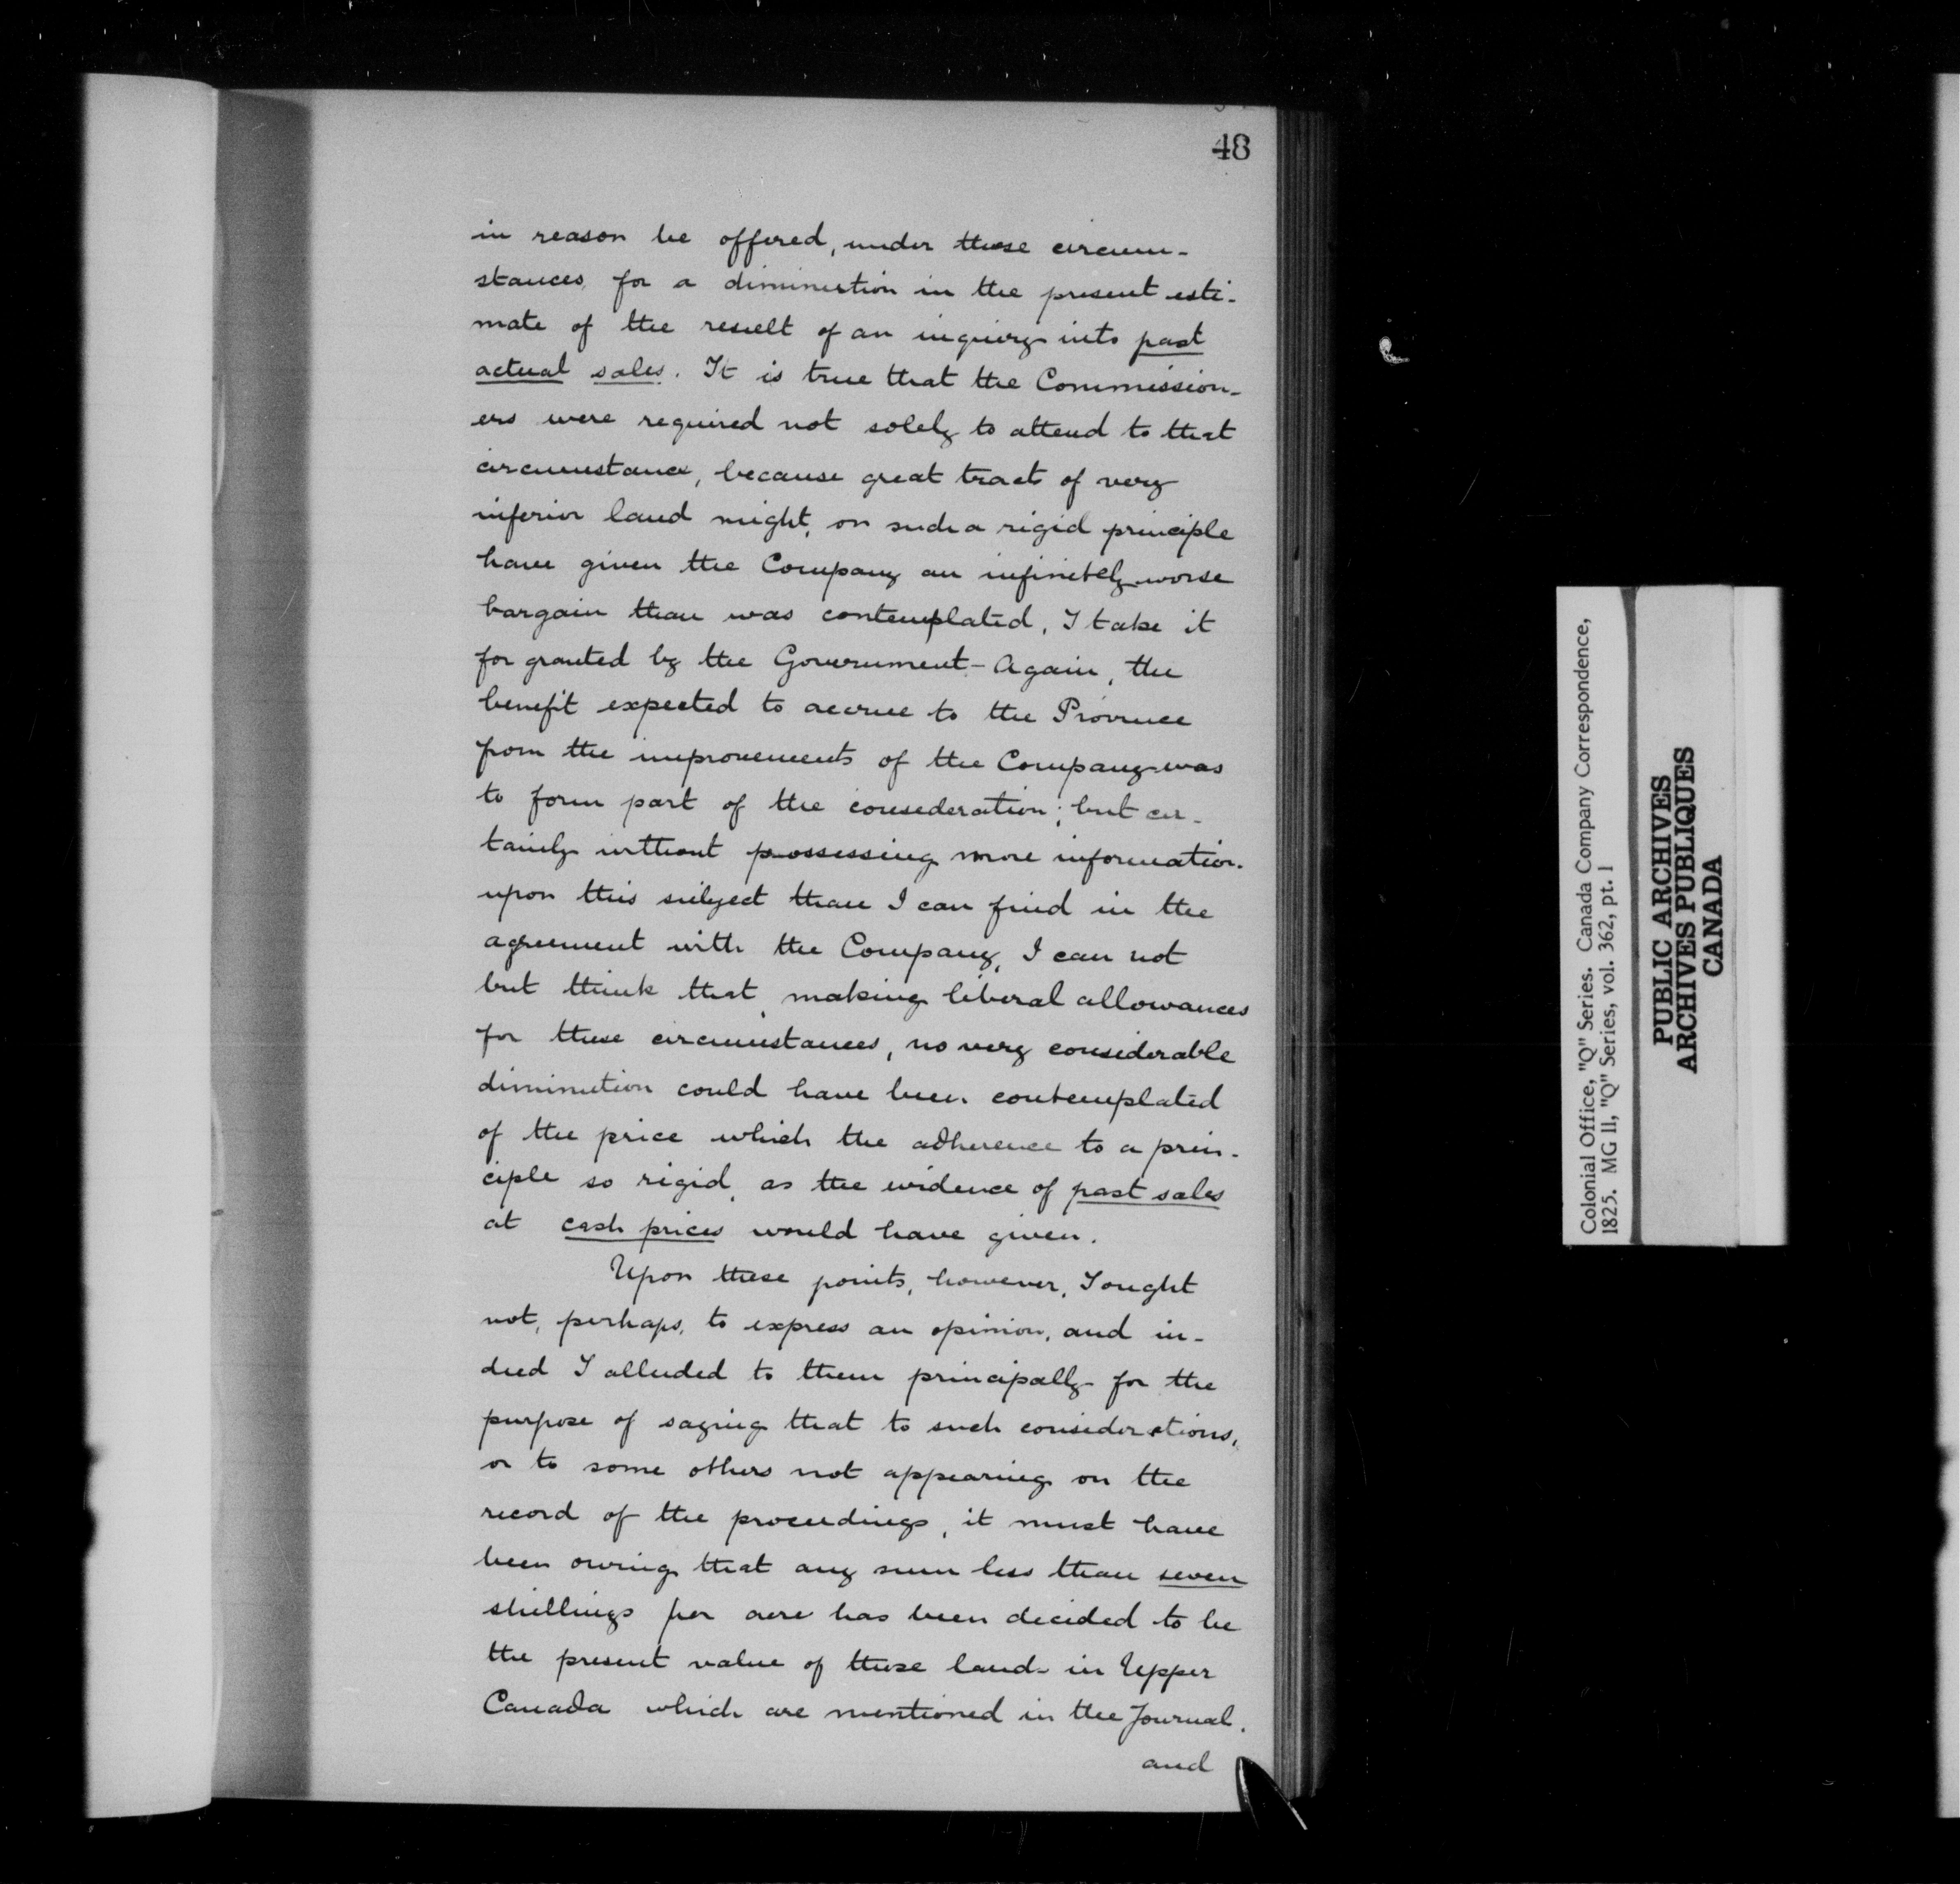 48
in reason be offered, under these circum-
stances, for a diminution in the present esti-
mate of the result of an inquiry into past
actual sales. It is true that the Commission-
ers were required not solely to attend to that
circumstance, because great tracts of very
inferior land might, on such a rigid principle
have given the Company an infinitely worse
bargain than was contemplated, I take it
for granted by the Government - Again, the
benefit expected to accrue to the Province
from the improvements of the Company was
to form part of the consideration; but cer-
tainly without possessing more information
upon this subject than I can find in the
agreement with the Company, I can not
but think that, making liberal allowances
for these circumstances, no very considerable
diminution could have been contemplated
of the price which the adherence to a prin-
ciple so rigid, as the evidence of past sales
at cash prices would have given.
Upon these points, however, I ought
not, perhaps, to express an opinion, and in-
deed I alluded to them principally for the
purpose of saying that to such considerations,
or to some others not appearing on the
record of the proceedings, it must have
been owing that any sum less than seven
shillings per acre has been decided to be
the present value of those lands in Upper
Canada which are mentioned in the Journal,
and
Colonial Office, "Q" Series. Canada Company Correspondence,
1825. MG 11, "Q" Series, vol. 362, pt. 1
PUBLIC ARCHIVES
ARCHIVES PUBLIQUES
CANADA